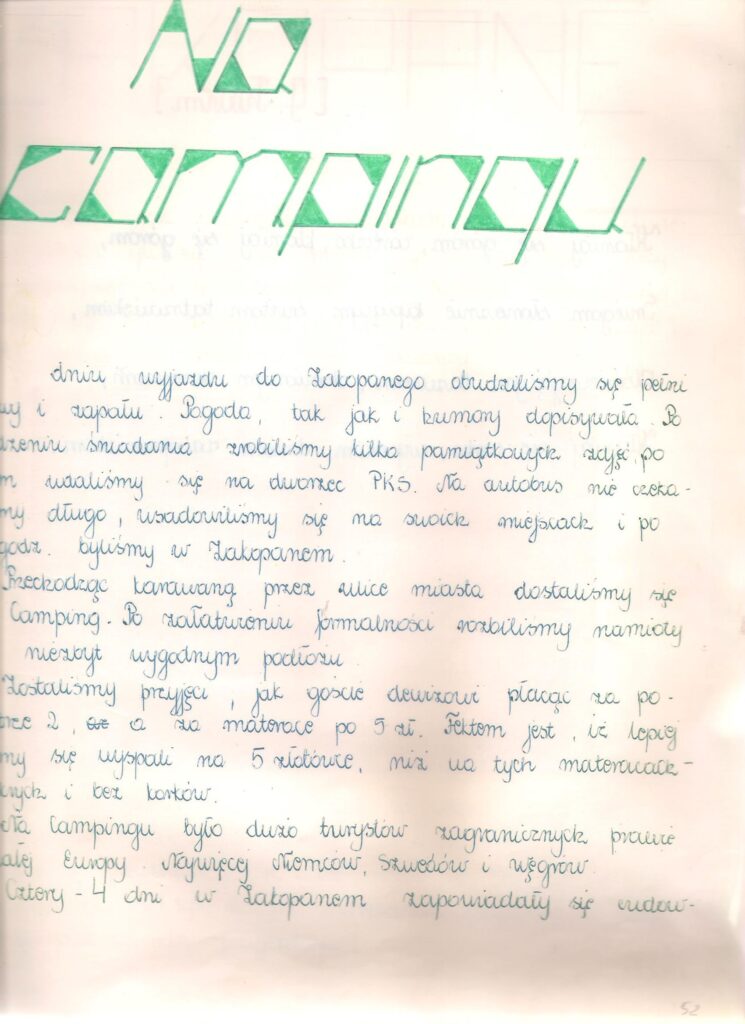 Na
campingu
dniu wyjazdu do Zakopanego obudziliśmy się pełni
wy i zapału. Pogoda, tak jak i humory dopisywała. Po
dzeniu śniadania zrobiliśmy kilka pamiątkowych zdjęć, po
m udaliśmy się na dworzec PKS. Na autobus nie czeka-
my długo, usadowiliśmy się na swoich miejscach i po
godz. byliśmy w Zakopanem.
Przechodząc karawaną przez ulice miasta dostaliśmy się
Camping. Po załatwieniu formalności rozbiliśmy namioty
niezbyt wygodnym podłożu.
Zostaliśmy przyjęci, jak goście dewizowi płacąc za po-
2, a za materace po 5 zł. Faktem jest, iż lepiej
my się wyspali na 5 złotówce, niż na tych materacach-
i bez korków.
Na Campingu było dużo turystów zagranicznych prawie
ałej Europy. Najwięcej Niemców, Szwedów i węgrów.
Cztery - 4 dni w Zakopanem zapowiadały się cudow-
52